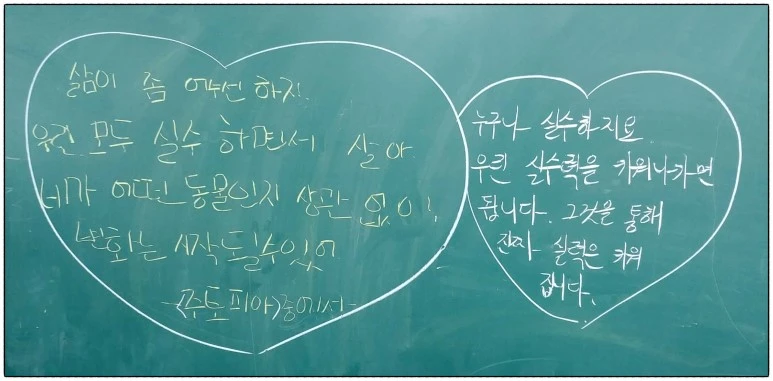 삶이 좀 어수선 하지.
우린 모두 실수 하면서 살아
네가 어떤 동물인지 상관 없이,
변화는 시작 될 수 있어
-<주토피아>중에서-
누구나 실수하지요
우린 실수력을 키워나가면
됩니다. 그것을 통해
진짜 실력은 키워
집니다.